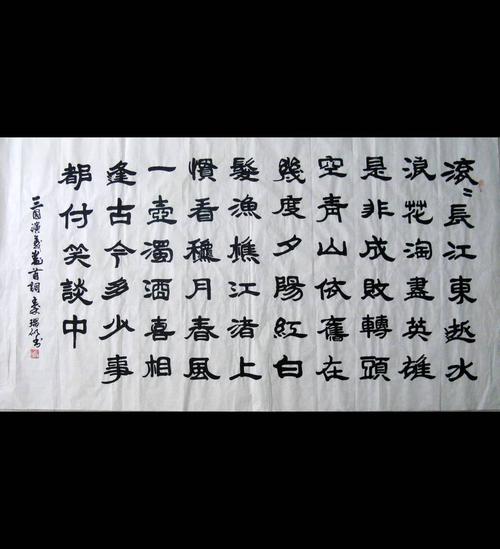 滚〻長江東逝水
浪花淘盡英雄
是非成敗轉頭
空青山依舊在
幾度夕陽紅白
髮漁樵江渚上
慣看穐月春風
一壺濁酒喜相
逢古今多少事
都付笑談中
三国演義卷首詞 瑞 书